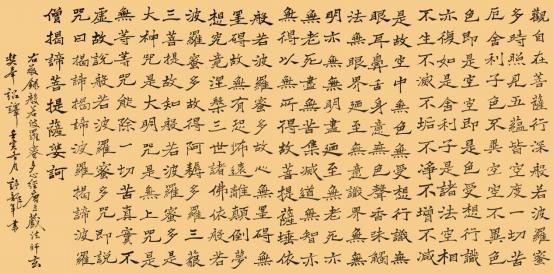 觀自在菩薩行深般若波羅蜜
多時照見五蘊皆空度一切苦
厄舍利子色不異空空不異色
色即是空空即是色受想行識
亦復如是舍利子是諸法空相
不生不滅不垢不淨不增不減
是故空中無色無受想行識無
眼耳鼻舌身意無色聲香味觸
法無眼界乃至無意識界無無
明亦無無明盡乃至無老死亦
無老死盡無苦集滅道無智亦
無得以無所得故菩提薩埵依
般若波羅蜜多故心無罣礙無
罣礙故無有恐怖遠離顛倒夢
想究竟涅槃三世諸佛依般若
波羅蜜多故得阿耨多羅三藐
三菩提故知般若波羅蜜多是
大神咒是大明咒是無上咒是
無等等咒能除一切苦真實不
虛故說般若波羅蜜多咒即說
咒曰揭諦揭諦波羅揭諦波羅
僧揭諦菩提薩婆訶
右敬錄般若波羅蜜多心經唐三藏法師玄
奘奉詔譯 壬寅 月 書